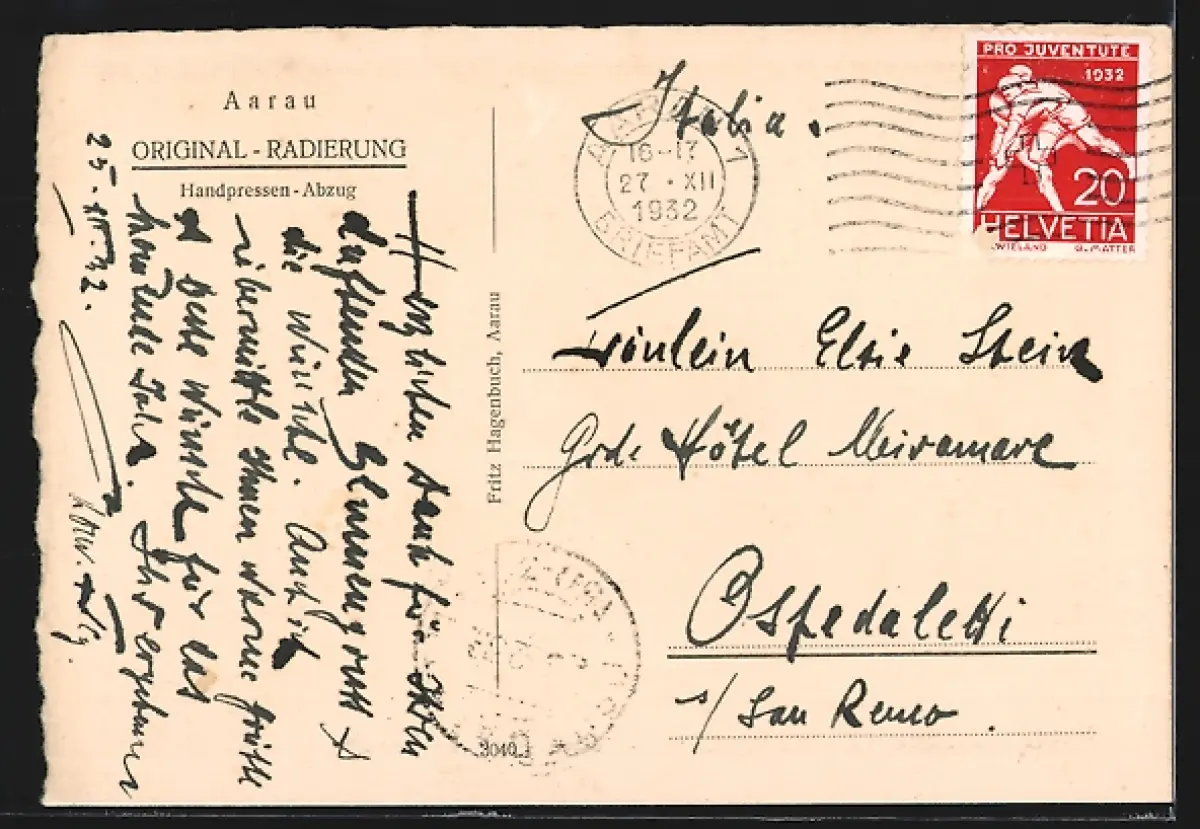 Aarau
ORIGINAL - RADIERUNG
Handpressen - Abzug
25. XII. 32.
Herzlichen Dank für Ihren
duftenden Blumengruss &
die Wünsche. Auch ich
übermittle Ihnen warme Grüsse
& beste Wünsche für das
kommende Jahr. Ihr ergebener
Fritz Hagenbuch, Aarau
3040
Italia.
AARAU 1
16-17
27. XII
1932
BRIEFAMT
PRO JUVENTUTE
1932
20
HELVETIA
WIELAND G. MATTER
Fräulein Elsie Stein
Grd. Hôtel Miramare
Ospedaletti
s/ San Remo.